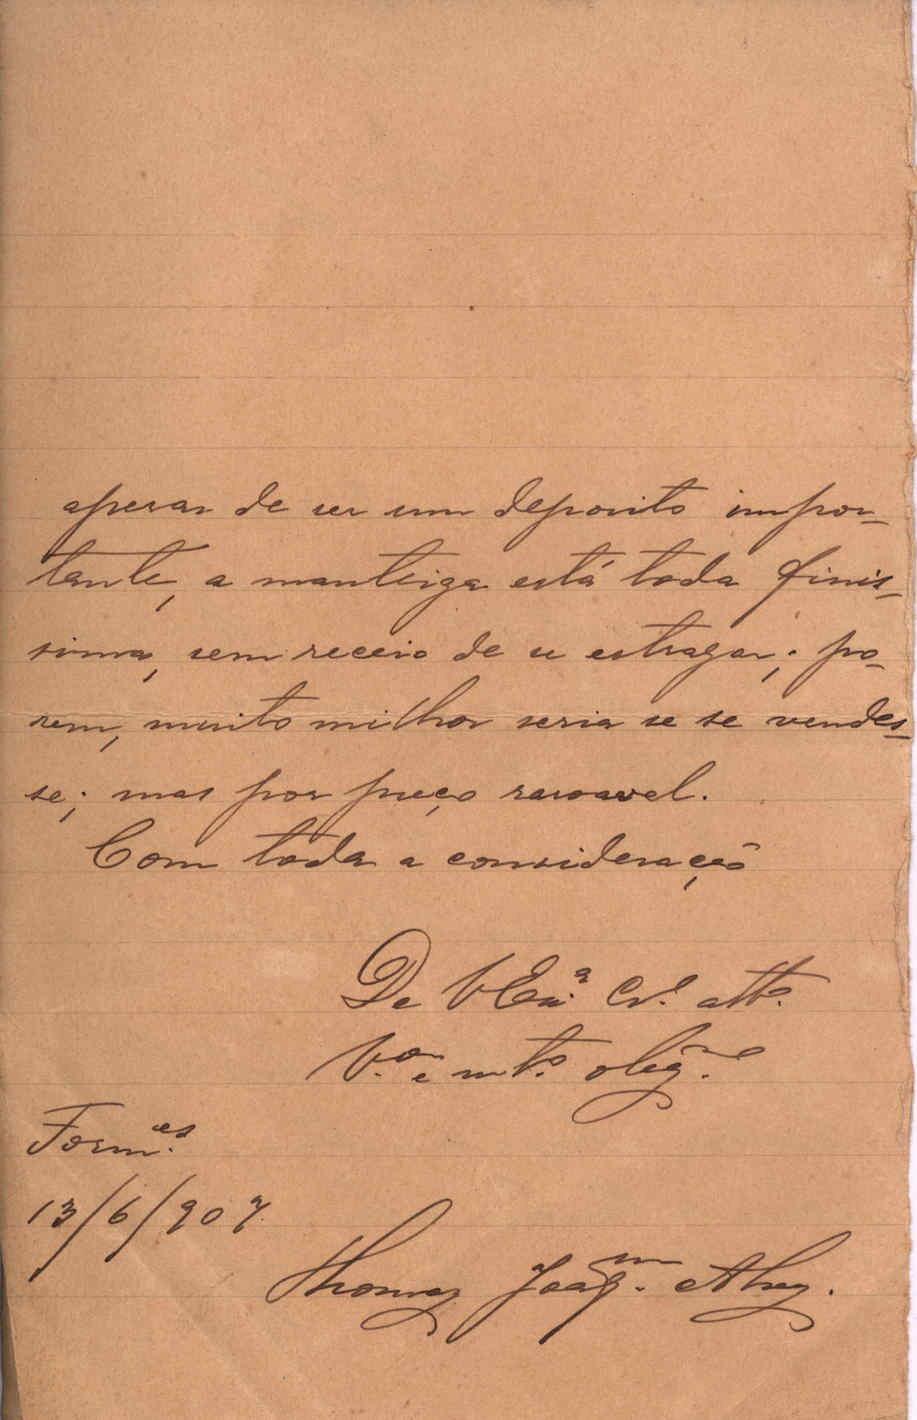 apesar de ser um deposito impor-
tante, a manteiga está toda finis-
sima, sem receio de se estragar; po-
rem, muito milhor seria se se vendes-
se; mas por preço rasoavel.
Com toda a consideração
De V Exª. Crº. attº.
V.ºr e mtº. obgmº.
Form.es
13/6/907.
Thomaz Joaqm.